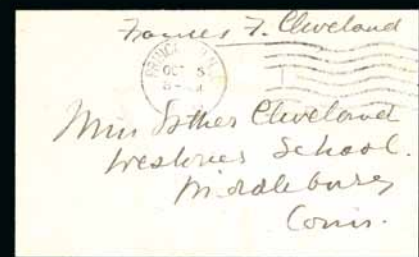 Frances F. Cleveland
PRINCETON, N.J.
OCT 5
Miss Esther Cleveland
Westover School.
Middlebury
Conn.